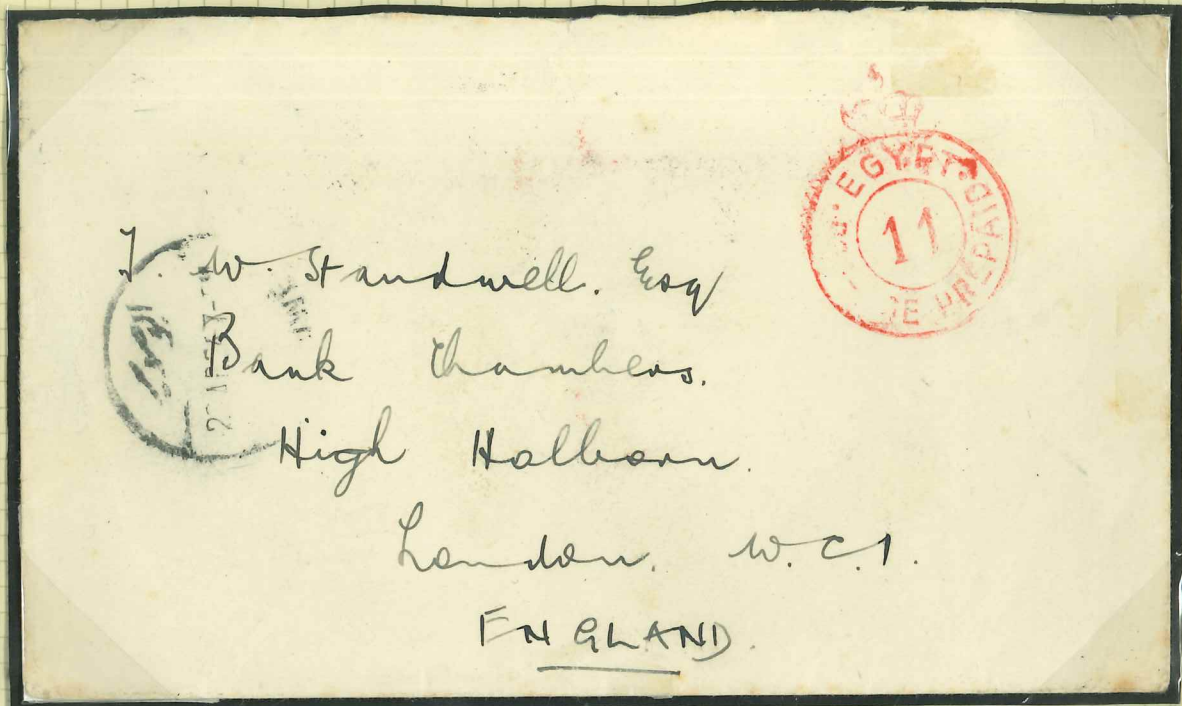 EGYPT
PREPAID
11
W. Standwell. Esq
Bank Chambers.
High Holborn.
London. W.C.1.
ENGLAND.